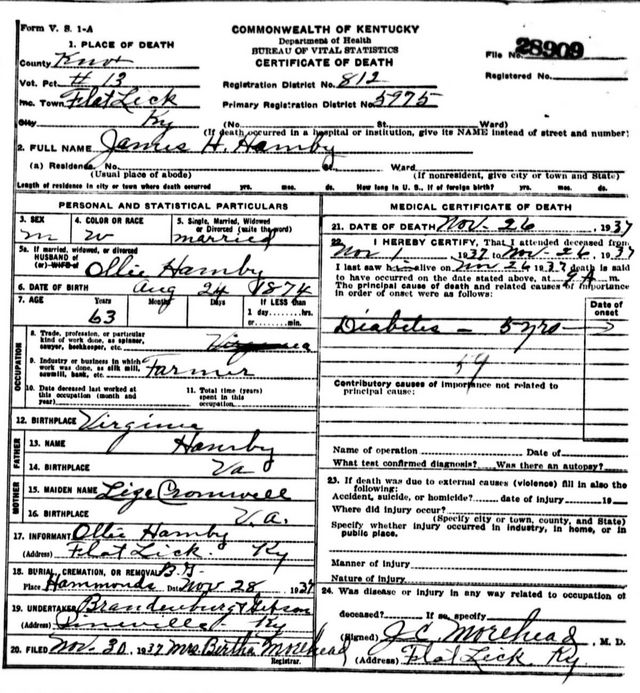 Form V. S. 1-A
COMMONWEALTH OF KENTUCKY
Department of Health
BUREAU OF VITAL STATISTICS
CERTIFICATE OF DEATH
File No. 28909
Registered No.
1. PLACE OF DEATH
County Knox
Vot. Pct. # 13
Inc. Town Flat Lick
City Ky
Registration District No. 812
Primary Registration District No. 5975
(No. St. Ward)
(If death occurred in a hospital or institution, give its NAME instead of street and number)
2. FULL NAME James H. Hamby
(a) Residence. No. St. Ward
(Usual place of abode) (If nonresident, give city or town and State)
Length of residence in city or town where death occurred yrs. mos. ds. How long in U. S., if of foreign birth? yrs. mos. ds.
PERSONAL AND STATISTICAL PARTICULARS
3. SEX m
4. COLOR OR RACE w
5. Single, Married, Widowed or Divorced (write the word) married
5a. If married, widowed, or divorced
HUSBAND of
(or) WIFE of Ollie Hamby
6. DATE OF BIRTH Aug 24 1874
7. AGE Years Months Days If LESS than
63 1 day, hrs.
or min.
OCCUPATION
8. Trade, profession, or particular
kind of work done, as spinner,
sawyer, bookkeeper, etc.
9. Industry or business in which
work was done, as silk mill,
sawmill, bank, etc. Farmer
10. Date deceased last worked at
this occupation (month and
year)
11. Total time (years)
spent in this
occupation
12. BIRTHPLACE Virginia
FATHER
13. NAME Hamby
14. BIRTHPLACE Va
MOTHER
15. MAIDEN NAME Lige Cromwell
16. BIRTHPLACE V.A.
17. INFORMANT Ollie Hamby
(Address) Flat Lick Ky
18. BURIAL, CREMATION, OR REMOVAL
Place Hammonds Nov 28 1937
19. UNDERTAKER Brandenburg & Gibson
(Address) Pineville Ky
20. FILED Nov. 30, 1937 Mrs. Bertha Morehead
Registrar.
MEDICAL CERTIFICATE OF DEATH
21. DATE OF DEATH Nov. 26, 1937
22. I HEREBY CERTIFY, That I attended deceased from
Nov 1, 1937 to Nov 26, 1937
I last saw h alive on Nov 26 1937 death is said
to have occurred on the date stated above, at
The principal cause of death and related causes of importance
in order of onset were as follows:
Date of
onset
Diabetes - 5 yrs -
59
Contributory causes of importance not related to
principal cause:
Name of operation Date of
What test confirmed diagnosis? Was there an autopsy?
23. If death was due to external causes (violence) fill in also the
following:
Accident, suicide, or homicide? date of injury 19
Where did injury occur?
(Specify city or town, county, and State)
Specify whether injury occurred in industry, in home, or in
public place.
Manner of injury
Nature of injury
24. Was disease or injury in any way related to occupation of
deceased? If so, specify
(Signed) J.C. Morehead, M. D.
(Address) Flat Lick Ky.